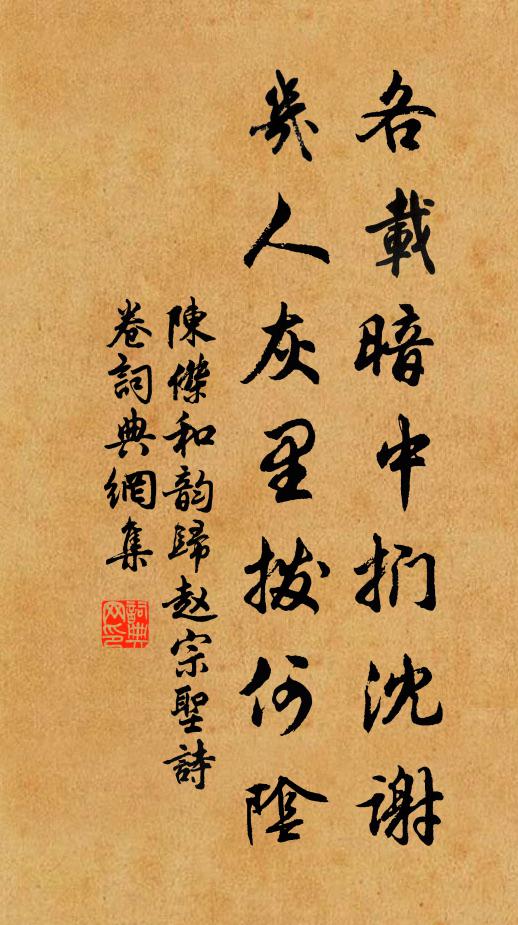 各載暗中捫沈謝
幾人灰里拨何陰
陳傑和韵歸赵宗聖詩
卷詞典網集
詞典网印